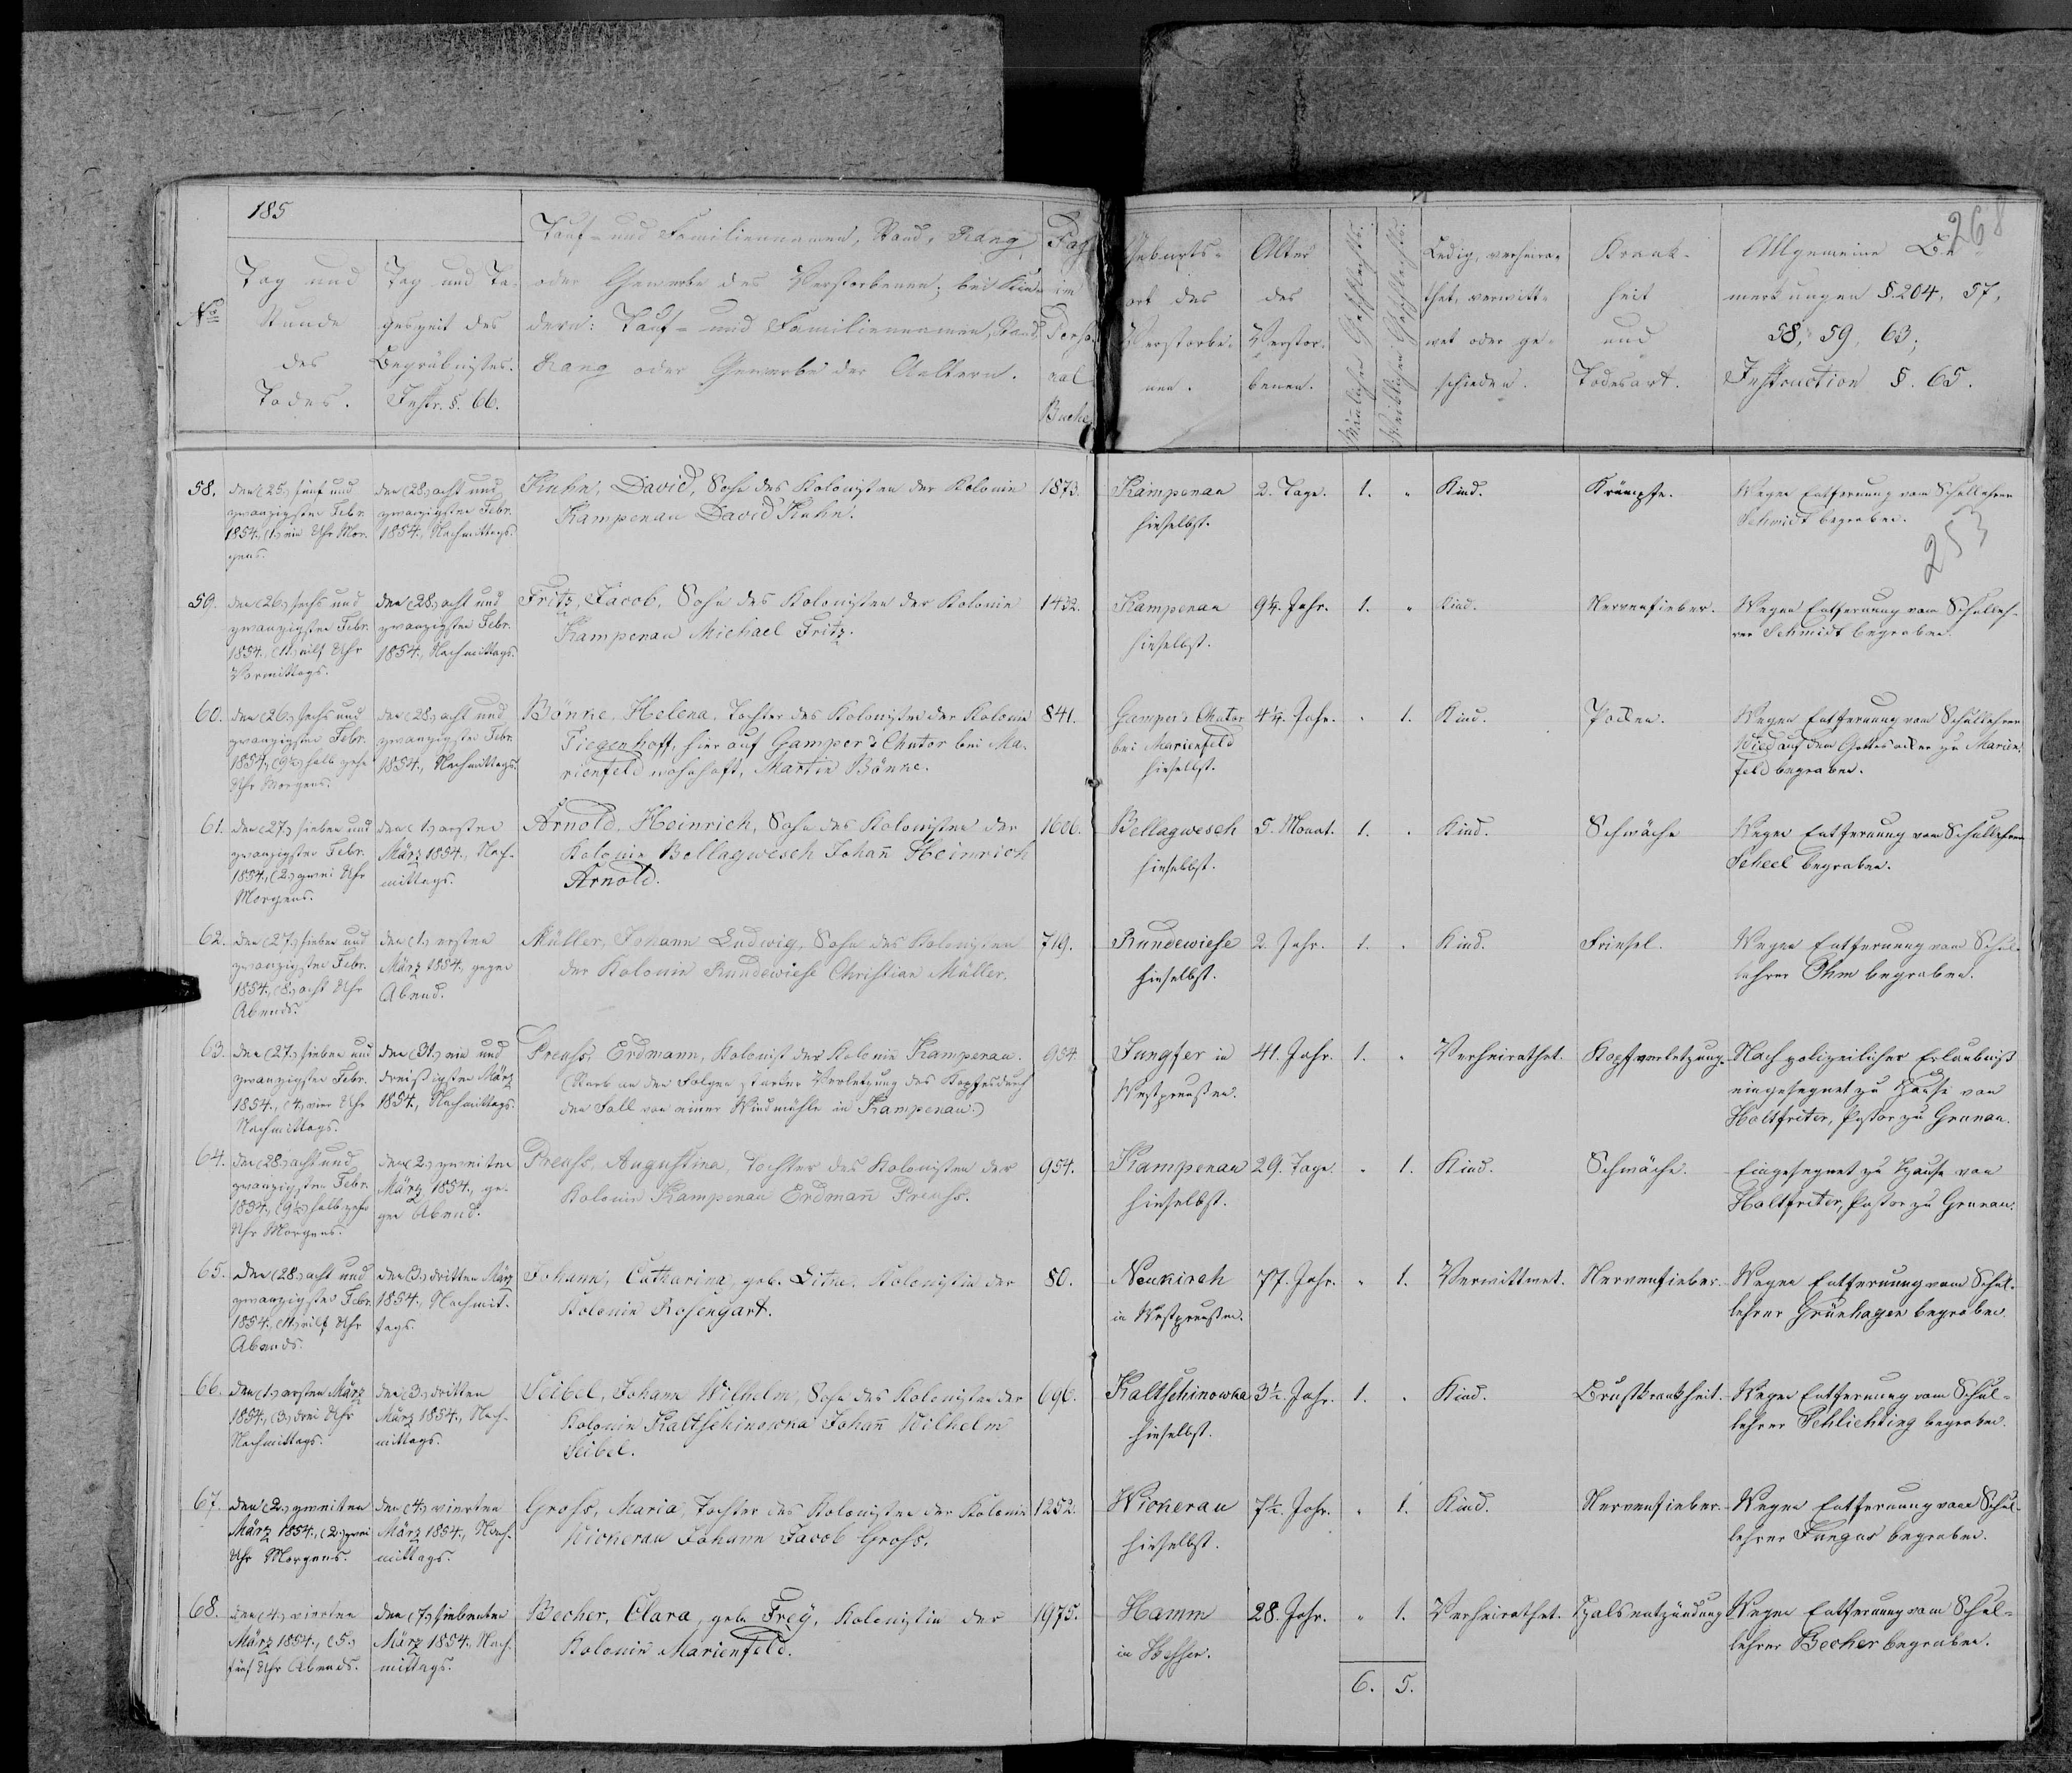 185
268
No
Tag und
Stunde
des
Todes.
Tag und Ta-
geszeit des
Begräbnisses.
Instr. §. 66.
Tauf- und Familiennamen, Stand, Rang
oder Gewerbe des Verstorbenen; bei Kin-
dern: Tauf- und Familiennamen, Stand,
Rang oder Gewerbe der Aeltern.
Pag.
im
Perso-
nal
Buche
Geburts-
ort des
Verstorbe-
nen.
Alter
des
Verstor-
benen.
Männlichen Geschlechts.
Weiblichen Geschlechts.
Ledig, verheira-
thet, verwitt-
wet oder ge-
schieden.
Krank-
heit
und
Todesart.
Allgemeine Be-
merkungen §. 204, 57,
58, 59, 63;
Instruction §. 65.
58.
den (25.) fünf und
zwanzigsten Febr.
1854., (1.) ein Uhr Mor-
gens.
den (28.) acht und
zwanzigsten Febr.
1854., Nachmittags.
Kuhn, David, Sohn des Kolonisten der Kolonie
Kampenau David Kuhn.
1873.
Kampenau
hieselbst.
2. Tage.
1.
"
Kind.
Krämpfe.
Wegen Entfernung vom Schullehrer
Schmidt begraben.
253
59.
den (26.) sechs und
zwanzigsten Febr.
1854., (11.) eilf Uhr
Vormittags.
den (28.) acht und
zwanzigsten Febr.
1854., Nachmittags.
Fritz, Jacob, Sohn des Kolonisten der Kolonie
Kampenau Michael Fritz.
1432.
Kampenau
hieselbst.
9¼. Jahr.
1.
"
Kind.
Nervenfieber.
Wegen Entfernung vom Schulleh-
rer Schmidt begraben.
60.
den (26.) sechs und
zwanzigsten Febr.
1854., (9½.) halb zehn
Uhr Morgens.
den (28.) acht und
zwanzigsten Febr.
1854., Nachmittags.
Bönke, Helena, Tochter des Kolonisten der Kolonie
Tiegenhoff, hier auf Gamper's Chutor bei Ma-
rienfeld wohnhaft, Martin Bönke.
841.
Gamper's Chutor
bei Marienfeld
hieselbst.
4¼. Jahr.
"
1.
Kind.
Pocken.
Wegen Entfernung vom Schullehrer
Wied auf dem Gottesacker zu Marien-
feld begraben.
61.
den (27.) sieben und
zwanzigsten Febr.
1854., (2.) zwei Uhr
Morgens.
den (1.) ersten
März 1854., Nach-
mittags.
Arnold, Heinrich, Sohn des Kolonisten der
Kolonie Bellagwesch Johañ Heinrich
Arnold.
1606.
Bellagwesch
hieselbst.
5. Monat.
1.
"
Kind.
Schwäche
Wegen Entfernung vom Schullehrer
Scheel begraben.
62.
den (27.) sieben und
zwanzigsten Febr.
1854., (8.) acht Uhr
Abends.
den (1.) ersten
März 1854., gegen
Abend.
Müller, Johann Ludwig, Sohn des Kolonisten
der Kolonie Rundewiese Christian Müller.
719.
Rundewiese
hieselbst.
2. Jahr.
1.
"
Kind.
Friesel.
Wegen Entfernung vom Schul-
lehrer Ohm begraben.
63.
den (27.) sieben und
zwanzigsten Febr.
1854., (4.) vier Uhr
Nachmittags.
den (31.) ein und
dreißigsten März
1854., Nachmittags.
Preuss, Erdmann, Kolonist der Kolonie Kampenau.
(Starb an den Folgen starker Verletzung des Kopfes durch
den Fall von einer Windmühle in Kampenau.)
954.
Jungfer in
Westpreußen.
41. Jahr.
1.
"
Verheirathet.
Kopfverletzung.
Nach polizeilicher Erlaubniß
eingesegnet zu Hause von
Holtfreter, Pastor zu Grunau.
64.
den (28.) acht und
zwanzigsten Febr.
1854., (9½.) halb zehn
Uhr Morgens.
den (2.) zweiten
März 1854., ge-
gen Abend.
Preuss, Augustina, Tochter des Kolonisten der
Kolonie Kampenau Erdmañ Preuss.
954.
Kampenau
hieselbst.
29. Tage.
"
1.
Kind.
Schwäche.
Eingesegnet zu Hause von
Holtfreter, Pastor zu Grunau.
65.
den (28.) acht und
zwanzigsten Febr.
1854., (11.) eilf Uhr
Abends.
den (3.) dritten März
1854., Nachmit-
tags.
Johann, Catharina, geb. Kolonistin der
Kolonie Rosengart.
80.
Neukirch
in Westpreußen.
77. Jahr.
"
1.
Verwittwet.
Nervenfieber.
Wegen Entfernung vom Schul-
lehrer Grünhagen begraben.
66.
den (1.) ersten März
1854., (3.) drei Uhr
Nachmittags.
den (3.) dritten
März 1854., Nach-
mittags.
Seibel, Johann Wilhelm, Sohn des Kolonisten der
Kolonie Kaltschinowka Johañ Wilhelm
Seibel.
696.
Kaltschinowka
hieselbst.
3½. Jahr.
1.
"
Kind.
Brustkrankheit.
Wegen Entfernung vom Schul-
lehrer Schlichting begraben.
67.
den (2.) zweiten
März 1854., (2.) zwei
Uhr Morgens.
den (4.) vierten
März 1854., Nach-
mittags.
Gross, Maria, Tochter des Kolonisten der Kolonie
Wickerau Johann Jacob Gross.
1252.
Wickerau
hieselbst.
7½. Jahr.
"
1.
Kind.
Nervenfieber.
Wegen Entfernung vom Schul-
lehrer begraben.
68.
den (4.) vierten
März 1854., (5.)
fünf Uhr Abends.
den (7.) siebenten
März 1854., Nach-
mittags.
Becher, Clara, geb. Frey, Kolonistin der
Kolonie Marienfeld.
1975.
Hamm
in Hessen.
28. Jahr.
"
1.
Verheirathet.
Halsentzündung
Wegen Entfernung vom Schul-
lehrer Becker begraben.
6.
5.